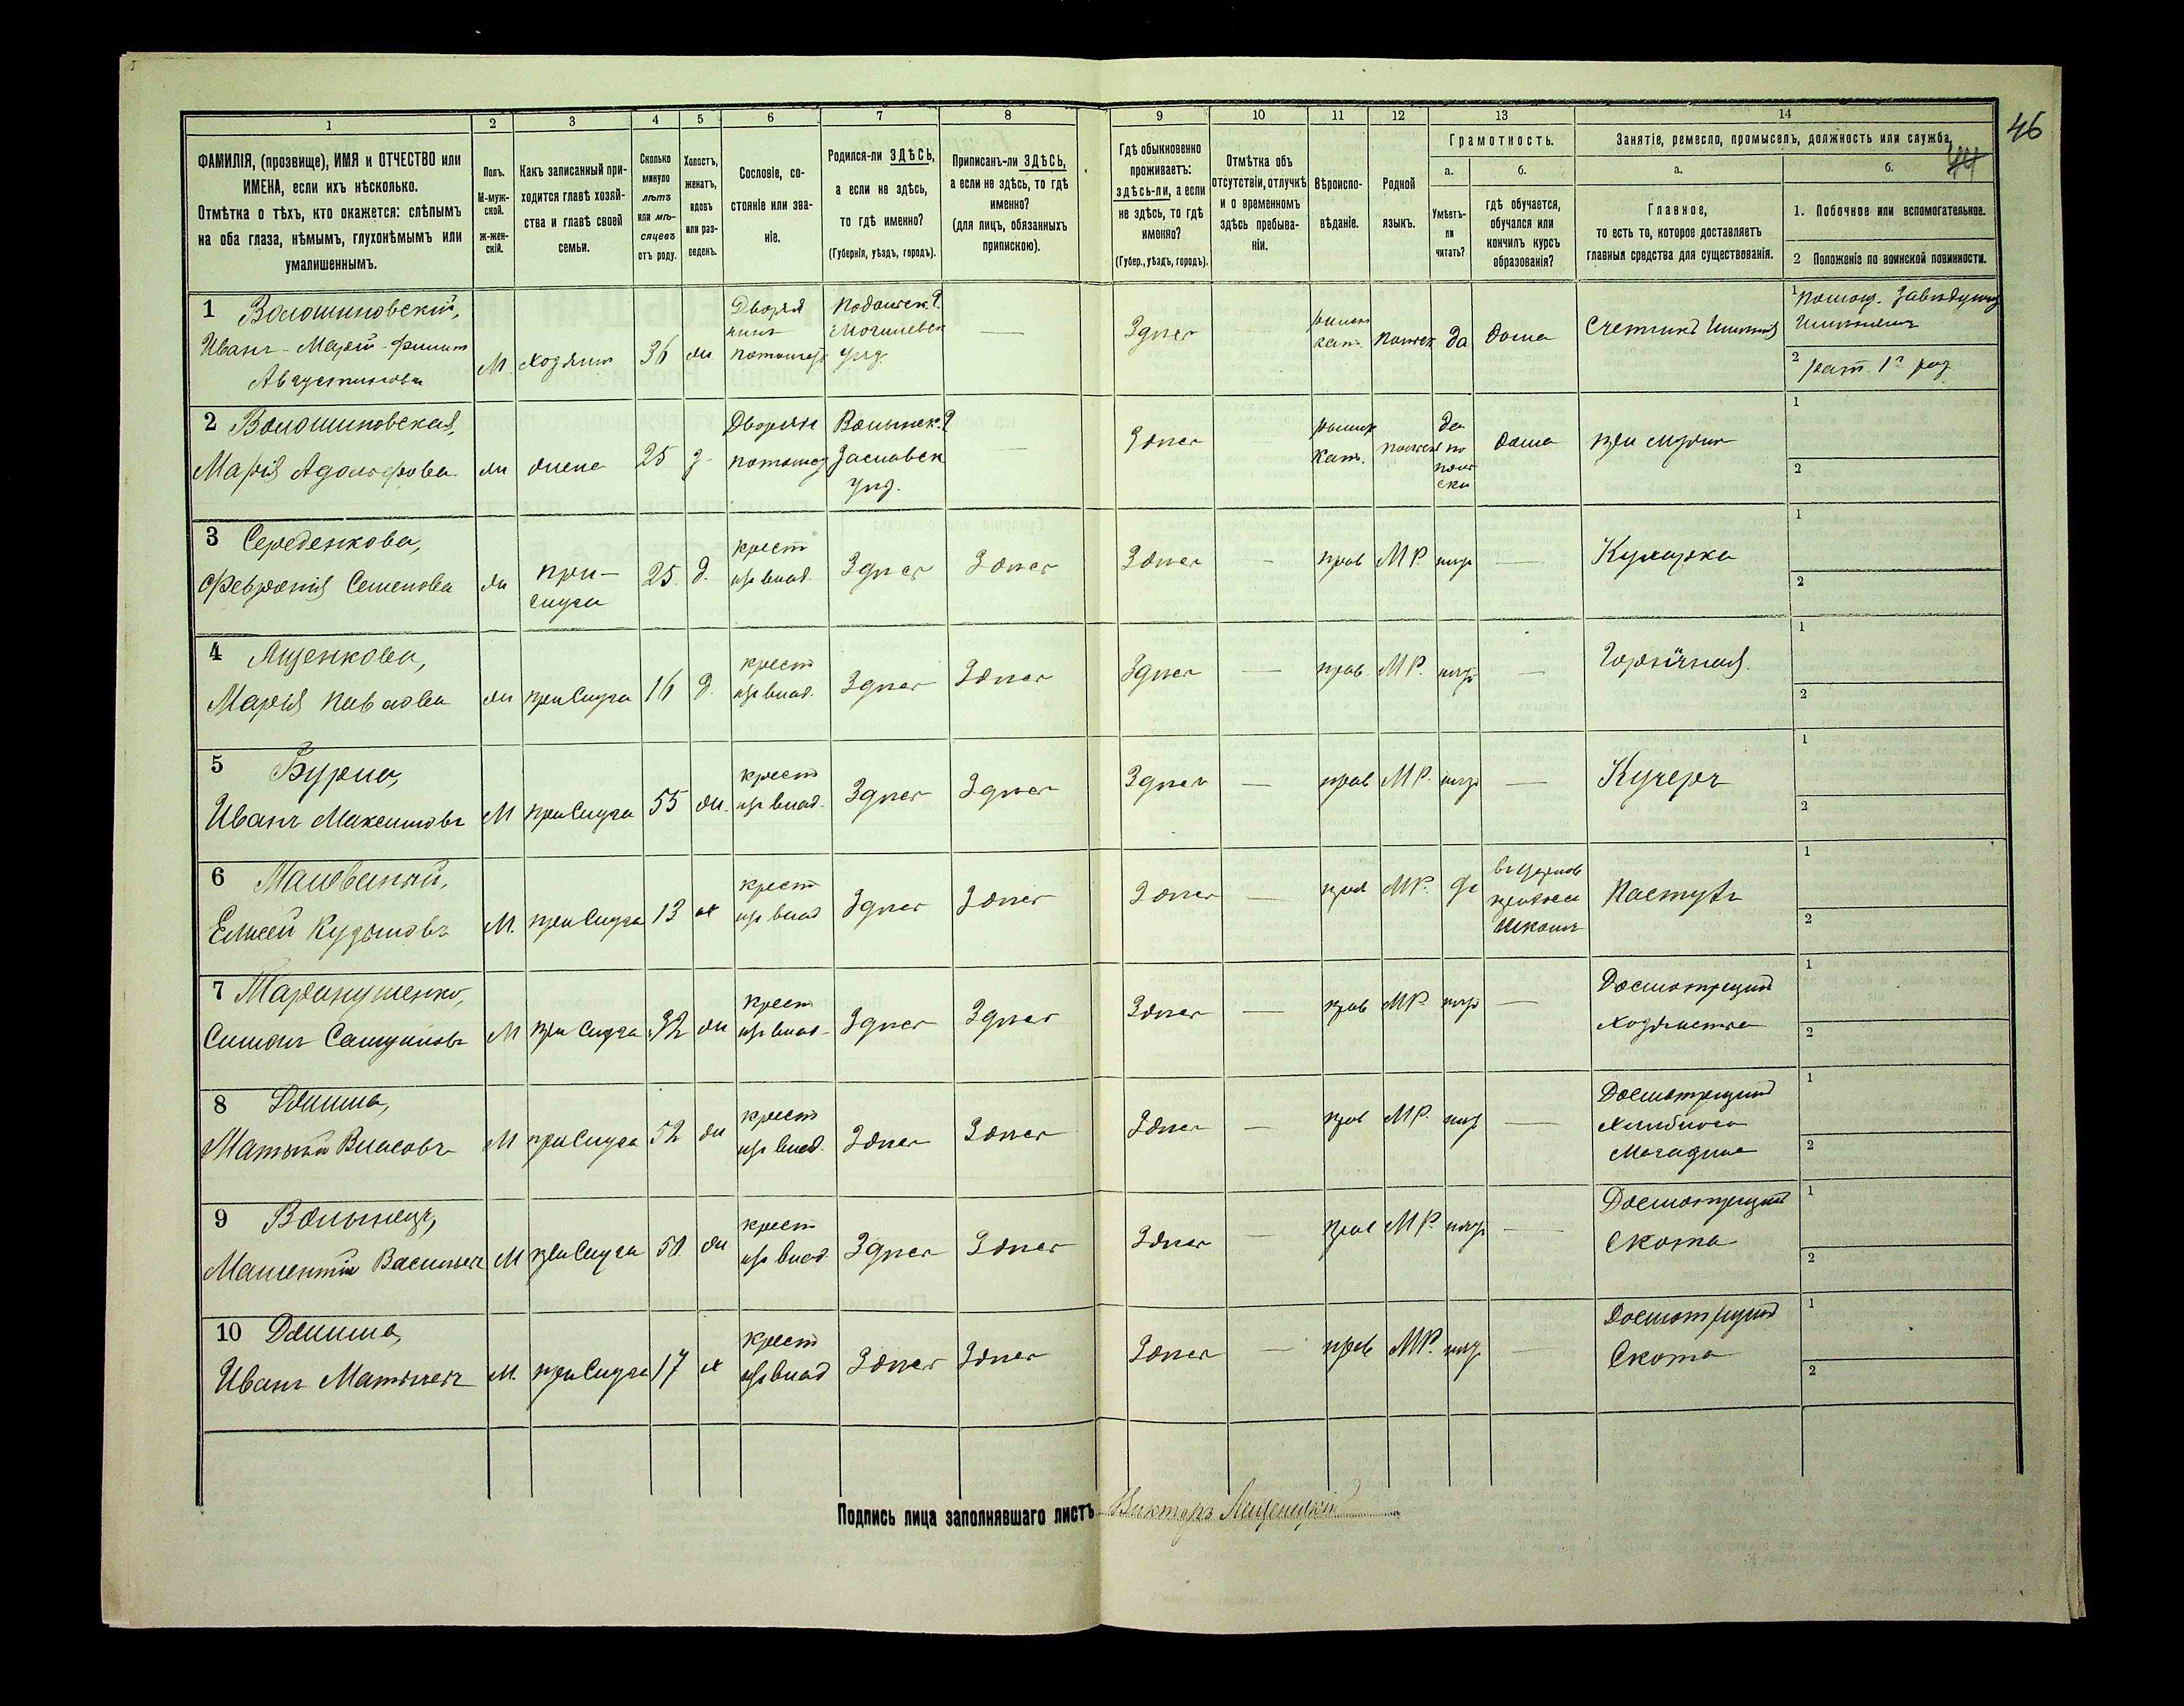 46
44
1
2
3
4
5
6
7
8
9
10
11
12
13
14
ФАМИЛІЯ, (прозвище), ИМЯ и ОТЧЕСТВО или
ИМЕНА, если ихъ нѣсколько.
Отмѣтка о тѣхъ, кто окажется: слѣпымъ
на оба глаза, нѣмымъ, глухонѣмымъ или
умалишеннымъ.
Полъ.
М-муж-
ской.
ж-жен-
скій.
Какъ записанный при-
ходится главѣ хозяй-
ства и главѣ своей
семьи.
Сколько
минуло
лѣтъ
или мѣ-
сяцевъ
отъ роду.
Холостъ,
женатъ,
вдовъ
или раз-
веденъ.
Сословіе, со-
стояніе или зва-
ніе.
Родился-ли ЗДѢСЬ,
а если не здѣсь,
то гдѣ именно?
(Губернія, уѣздъ, городъ).
Приписанъ-ли ЗДѢСЬ,
а если не здѣсь, то гдѣ
именно?
(для лицъ, обязанныхъ
припискою).
Гдѣ обыкновенно
проживаетъ:
здѣсь-ли, а если
не здѣсь, то гдѣ
именно?
(Губер., уѣздъ, городъ).
Отмѣтка объ
отсутствіи, отлучкѣ
и о временномъ
здѣсь пребыва-
ніи.
Вѣроиспо-
вѣданіе.
Родной
языкъ.
Грамотность.
а.
Умѣетъ-
ли
читать?
б.
гдѣ обучается,
обучался или
кончилъ курсъ
образованія?
Занятіе, ремесло, промыселъ, должность или служба.
а.
Главное,
то есть то, которое доставляетъ
главныя средства для существованія.
б.
1. Побочное или вспомогательное.
2 Положеніе по воинской повинности.
1 Волошиновскій,
Иванъ-Марій-Филип
Августиновъ
М. хозяинъ 36 ж
Дворя
нинъ
потомств
Подольск. г.
Могилевск
уѣзд.
—
Здѣсь
—
римск
кат.
польск
да
дома
Счетчикъ Имѣнія
1 помощ. Завѣдующ
Имѣніемъ
2 рат. 1го раз
2 Волошиновская,
Марія Адольфова
ж жена 25 з.
Дворян
потомст
Волынск. г.
Заславск
уѣзд.
—
Здѣсь
—
римск
кат.
польск
да
по
поль
ски
дома
при мужѣ
1
2
3 Середенкова,
Февронія Семенова
ж
при-
слуга
25. д.
крест
изъ влад.
Здѣсь Здѣсь Здѣсь — прав МР. негр —
Кухарка
1
2
4 Ященкова,
Марія Павлова
ж прислуга 16 д.
крест
изъ влад.
Здѣсь Здѣсь Здѣсь — прав. МР. негр —
Горничная.
1
2
5 Бурла,
Иванъ Максимовъ
М прислуга 55 ж.
крест
изъ влад.
Здѣсь Здѣсь Здѣсь — прав МР. негр —
Кучеръ
1
2
6
Елисей Кузьмовъ
М. прислуга 13 х
крест
изъ влад
Здѣсь Здѣсь Здѣсь — прав МР. да
въ Церков
приход
школѣ
Пастухъ
1
2
7
Симонъ Самуиловъ
М прислуга 32 ж
крест
изъ влад.
Здѣсь Здѣсь Здѣсь — прав МР. негр —
Досмотрщикъ
хозяйства
1
2
8
Матвій Власовъ
М прислуга 52 ж
крест
изъ влад.
Здѣсь Здѣсь Здѣсь — прав МР. негр —
Досмотрщикъ
хлѣбного
магазина
1
2
9 Волынецъ,
Васильевъ
М прислуга 50. ж
крест
изъ влад
Здѣсь Здѣсь Здѣсь — прав МР. негр —
Досмотрщикъ
Скота
1
2
10
Иванъ Матвѣевъ
М. прислуга 17 х
крест
изъ влад
Здѣсь Здѣсь Здѣсь — прав МР. негр —
Досмотрщикъ
Скота
1
2
Подпись лица заполнявшаго листъ Викторъ